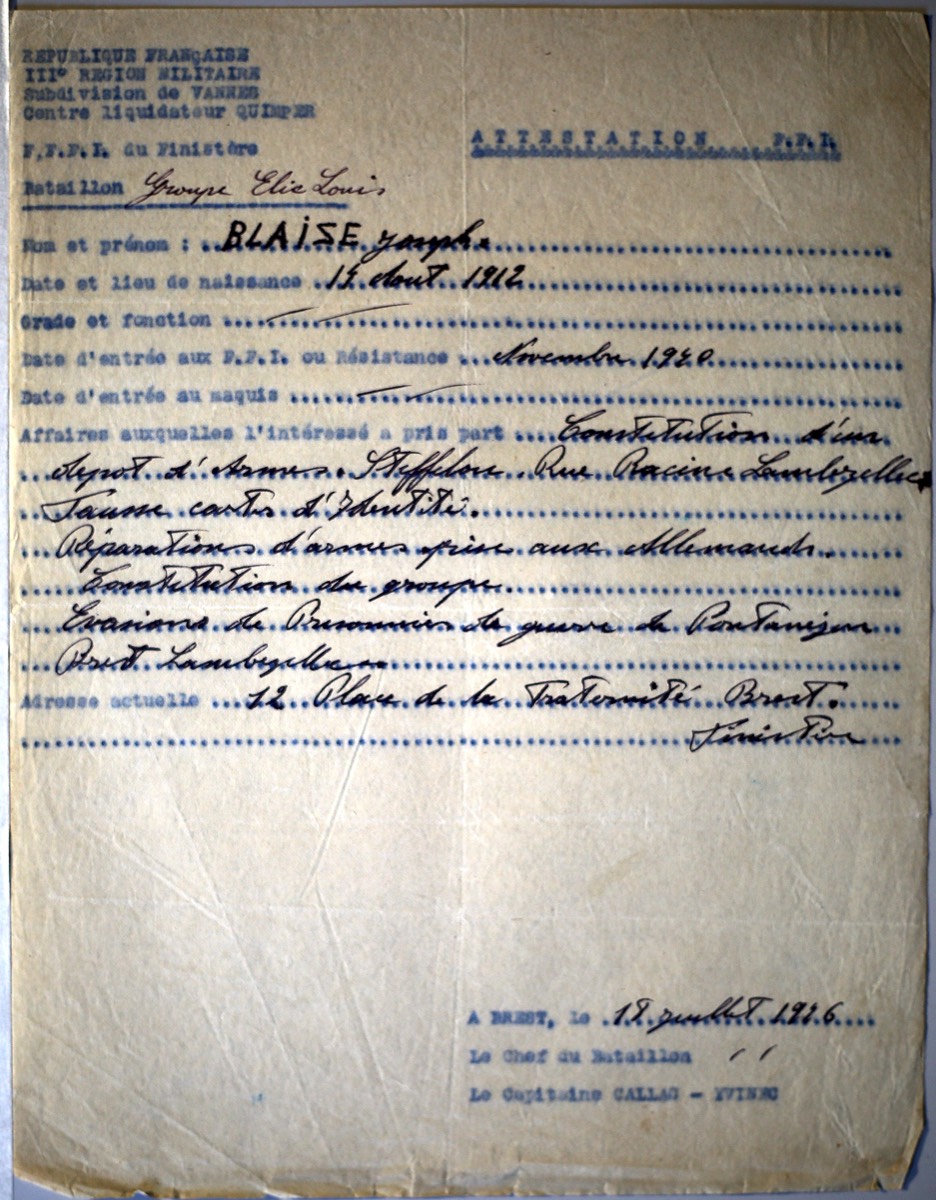 REPUBLIQUE FRANÇAISE
III° REGION MILITAIRE
Subdivision de VANNES
Centre liquidateur QUIMPER
F,F.F.I. du Finistère
ATTESTATION F.F.I.
Bataillon Groupe Elie Louis
Nom et prénom : BLAISE Joseph.
Date et lieu de naissance Aout 1912
Grade et fonction
Date d'entrée aux F.F.I. ou Résistance Novembre 1940
Date d'entrée au maquis
Affaires auxquelles l'intéressé a pris part Constitution d'un
depot d'Armes. Rue Racine Lambezellec
Fausse cartes d'Identité.
Réparations d'armes prise aux Allemands.
Constitution du groupe.
Evasions de Prisonniers de guerre de Pontanezen
Brest Lambezellec
Adresse actuelle 12 Place de la Fraternité Brest.
Finistère
A BREST, le 18 juillet 1946
Le Chef du Bataillon
Le Capitaine CALLAG - YVINEC